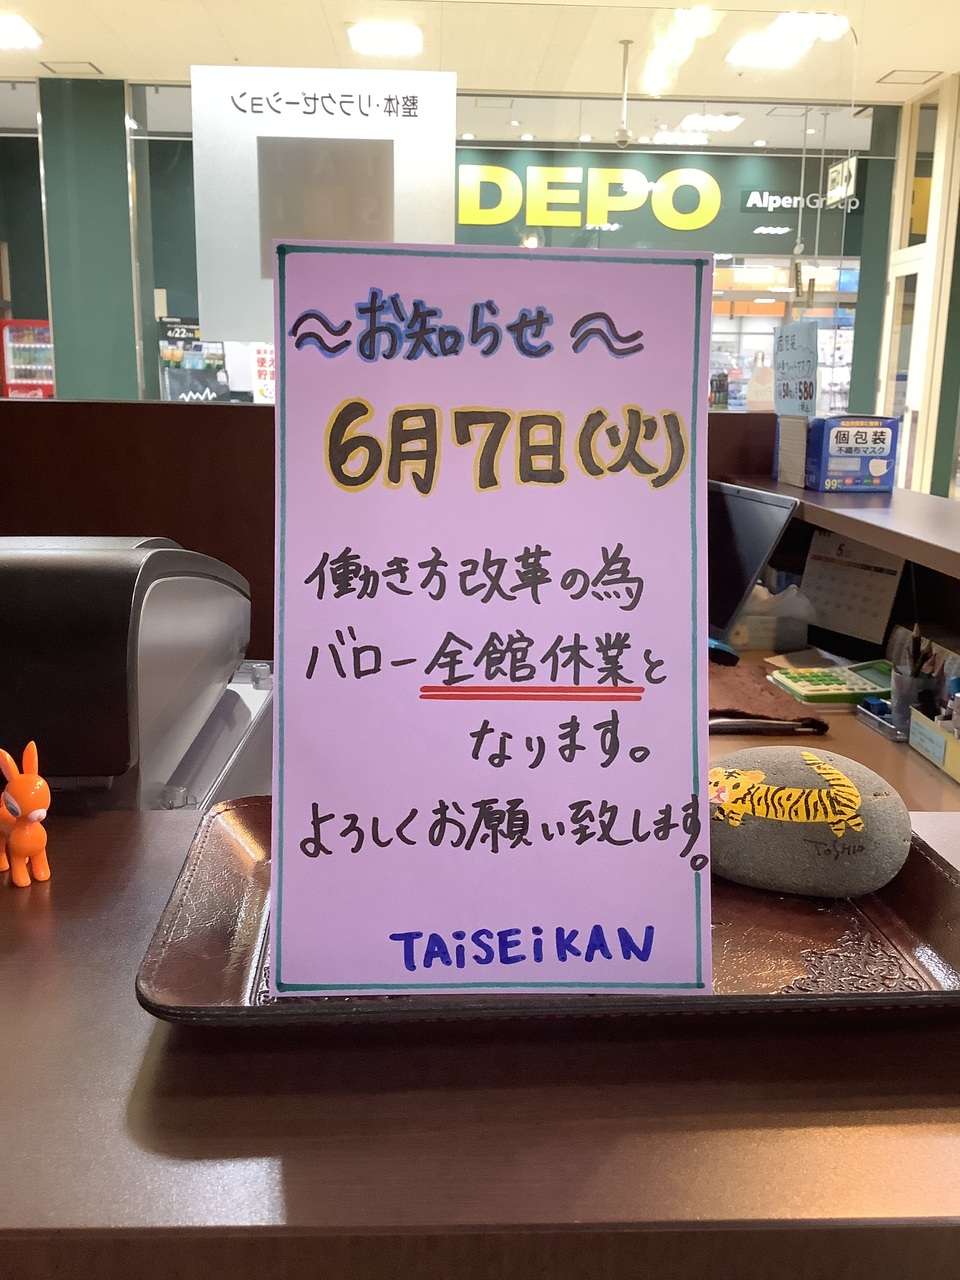 整体・リラクゼーション
DEPO
AlpenGroup
〜お知らせ〜
6月7日(火)
働き方改革の為
バロー全館休業と
なります。
よろしくお願い致します。
TAiSEiKAN
4/22
個包装
不織布マスク
580
TOSHIO